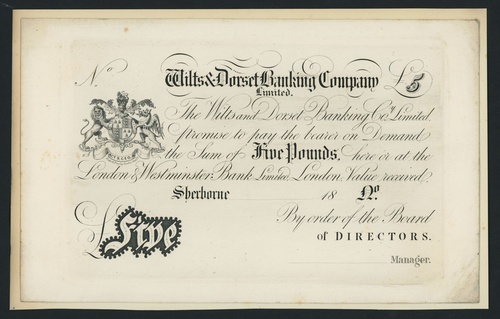 No Wilts & Dorset Banking Company £5
Limited.
The Wilts and Dorset Banking Coy. Limited
promise to pay the bearer on Demand
the Sum of Five Pounds, here or at the
London & Westminster Bank Limited, London, Value received.
Sherborne 18 No
By order of the Board
£Five of DIRECTORS.
Manager.